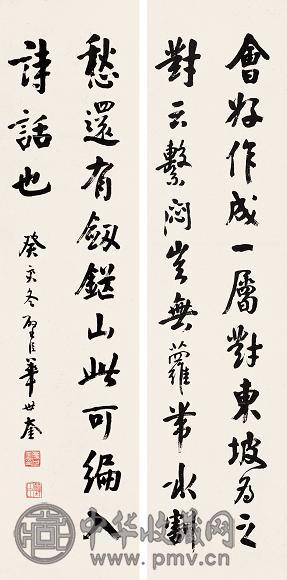 會好作成一屬對東坡為之
對云繫悶豈無蘿帶水割
愁還有劍鋩山此可編入
詩話也
癸亥冬璧臣華世奎
中华收藏网
www.pmv.cn